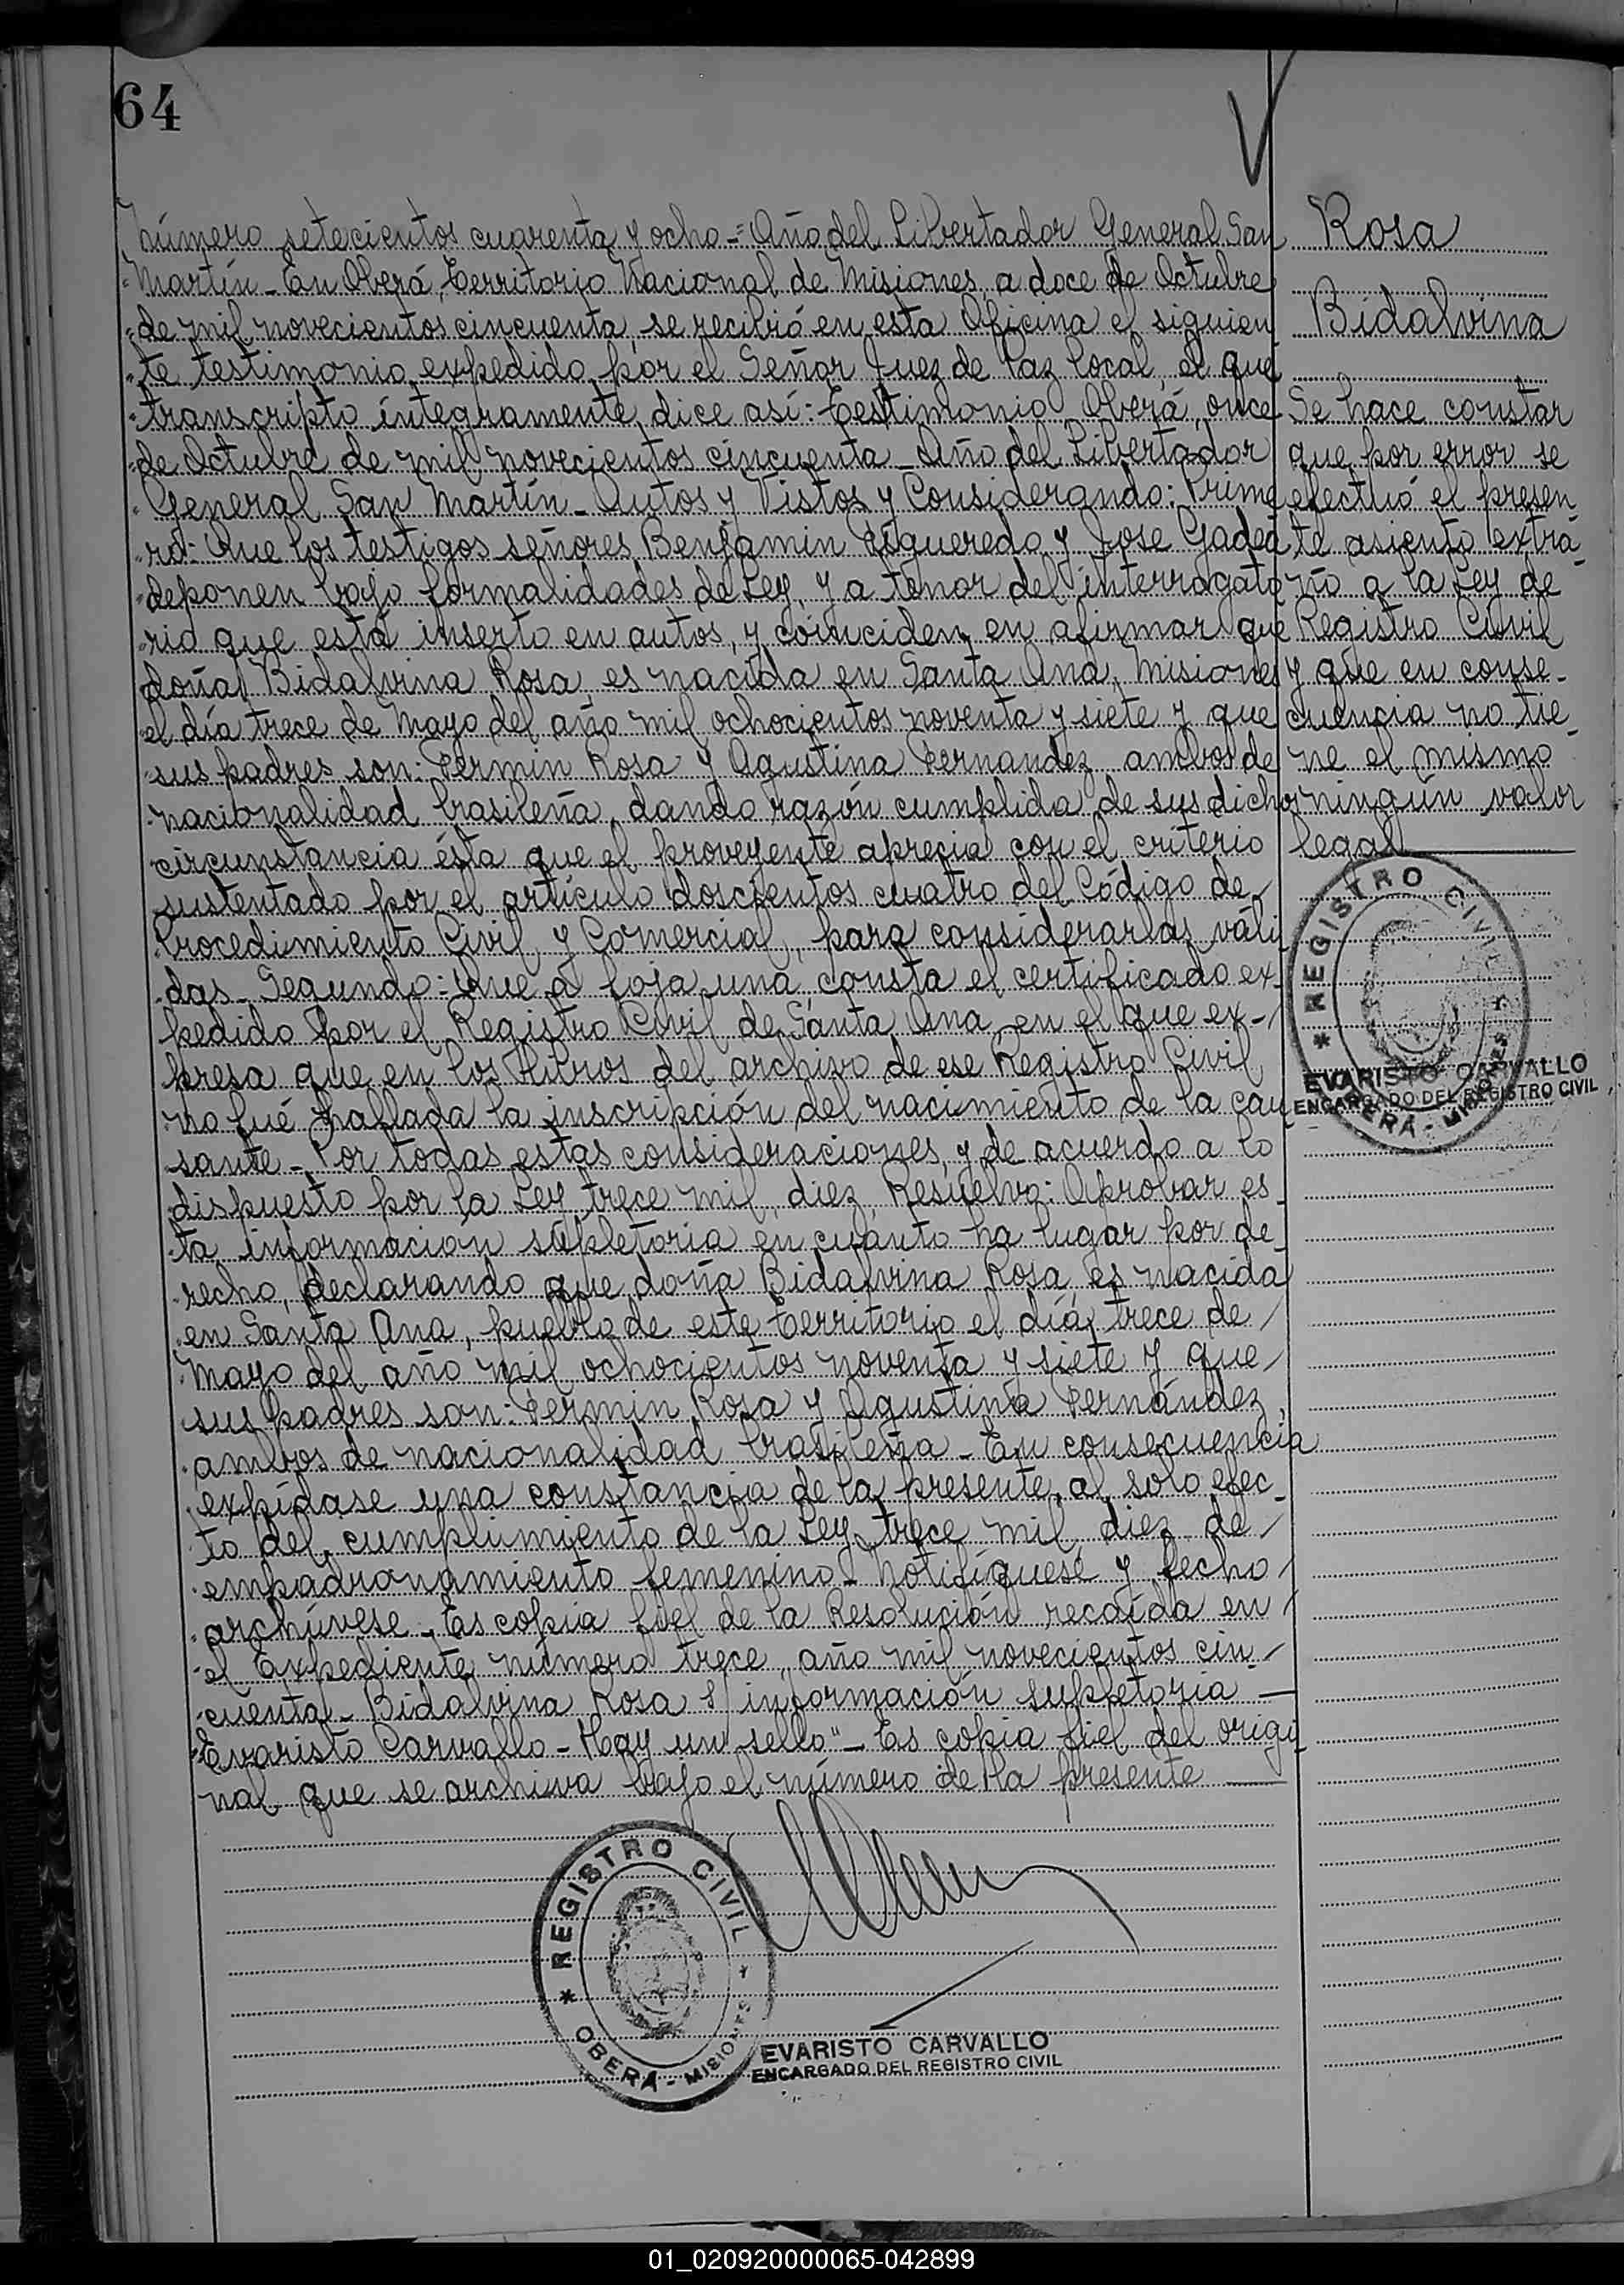 64
Número setecientos cuarenta y ocho-=Año del Libertador General San
Martín - En Oberá, Territorio Nacional de Misiones, a doce de Octubre
de mil novecientos cincuenta, se recibió en esta Oficina el siguien
te testimonio, expedido por el Señor Juez de Paz Local, el que
transcripto íntegramente, dice así: Testimonio. Oberá, once
de Octubre de mil novecientos cincuenta - Año del Libertador
General San Martín - Autos y Vistos y Considerando: Prime
ro: Que los testigos señores Benjamin Figueredo y Jose Gadea
deponen bajo formalidades de Ley, y a tenor del interrogato
rio que está inserto en autos, y coinciden en afirmar que
doña Bidalvina Rosa, es nacida en Santa Ana, Misiones
el día trece de Mayo del año mil ochocientos noventa y siete y que
sus padres son: Fermin Rosa y Agustina Fernandez ambos de
nacionalidad brasileña, dando razón cumplida de sus dichos
circunstancia ésta que el proveyente aprecia con el criterio
sustentado por el artículo doscientos cuatro del Código de
Procedimiento Civil y Comercial, para considerarlas váli
das - Segundo: Que a foja una, consta el certificado ex-
pedido por el Registro Civil de Santa Ana, en el que ex-/
presa que en los libros del archivo de ese Registro Civil
no fué hallada la inscripción del nacimiento de la cau
sante - Por todas estas consideraciones, y de acuerdo a lo
dispuesto por la Ley trece mil, diez, Resuelvo: Aprobar es-
ta información supletoria en cuanto ha lugar por de-
recho, declarando que doña Bidalvina Rosa, es nacida
en Santa Ana, pueblo de este Territorio el día trece de/
Mayo del año mil ochocientos noventa y siete y que/
sus padres son: Fermin Rosa y Agustina Fernández,
ambos de nacionalidad brasileña - En consecuencia
expídase una constancia de la presente, al solo efec-
to del cumplimiento de la Ley trece mil, diez, de/
empadronamiento femenino - Notifíquese y fecho/
archívese - Es copia fiel de la Resolución recaída en/
el Expediente número trece, año mil novecientos cin-/
cuenta - Bidalvina Rosa s/ información supletoria —
Evaristo Carvallo - Hay un sello" - Es copia fiel del origi
nal que se archiva bajo el número de la presente —
REGISTRO CIVIL
* OBERÁ - MISIONES *
EVARISTO CARVALLO
ENCARGADO DEL REGISTRO CIVIL
Rosa
Bidalvina
Se hace constar
que por error se
efectuó el presen
te asiento extra-
ño a la Ley de
Registro Civil
y que en conse-
cuencia no tie-
ne el mismo
ningún valor
legal —
REGISTRO CIVIL
* OBERÁ - MISIONES *
EVARISTO CARVALLO
ENCARGADO DEL REGISTRO CIVIL
01_020920000065-042899